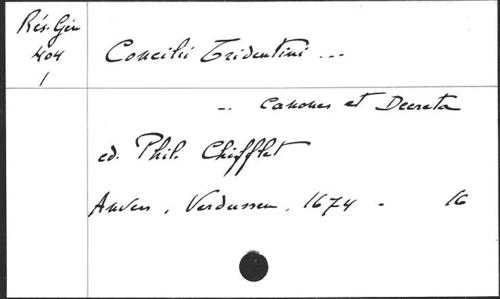 Rés. Gén
404
1
Concilii Tridentini ...
.. Canones et Decreta
ed. Phil. Chifflet
Anvers, Verdussen, 1674 - 16